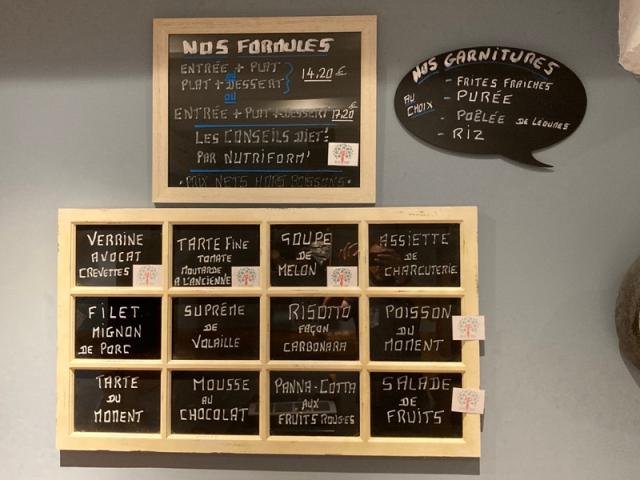 NOS FORMULES
ENTRÉE + PLAT
OU
PLAT + DESSERT
14.20 €
OU
ENTRÉE + PLAT + DESSERT 17.20 €
LES CONSEILS DIET!
PAR NUTRIFORM'
PRIX NETS HORS BOISSONS
NOS GARNITURES
AU
CHOIX
- FRITES FRAICHES
- PURÉE
- POÊLÉE DE LÉGUMES
- RIZ
VERRINE
AVOCAT
CREVETTES
TARTE FINE
TOMATE
MOUTARDE
A L'ANCIENNE
SOUPE
DE
MELON
ASSIETTE
DE
CHARCUTERIE
FILET
MIGNON
DE PORC
SUPRÊME
DE
VOLAILLE
RISOTTO
FAÇON
CARBONARA
POISSON
DU
MOMENT
TARTE
DU
MOMENT
MOUSSE
AU
CHOCOLAT
PANNA-COTTA
AUX
FRUITS ROUGES
SALADE
DE
FRUITS